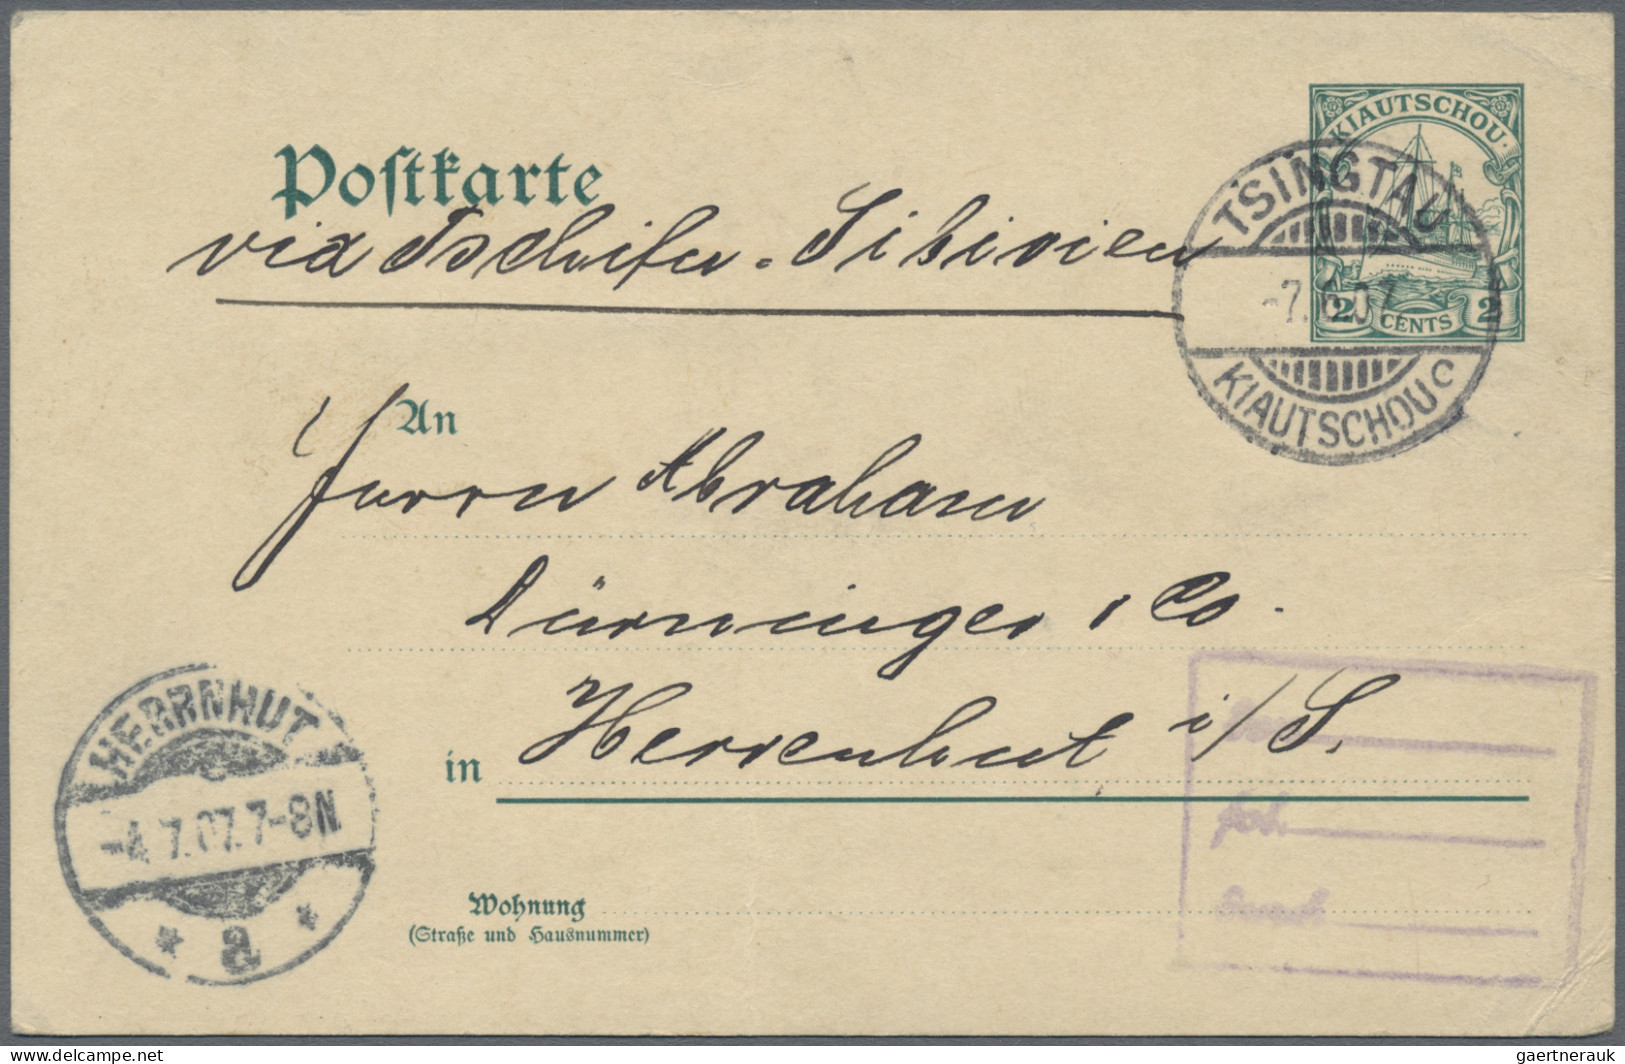 KIAUTSCHOU
Postkarte
TSINGTAU
via Tschifu - Sibirien
-7.6.07.
2 CENTS 2
KIAUTSCHOU
An
Herrn Abraham
Dürninger & Co.
HERRNHUT
in Herrenhut i/S.
-4.7.07.7-8N.
* a *
Wohnung
(Straße und Hausnummer)
delcampe.net
gaertnerauk